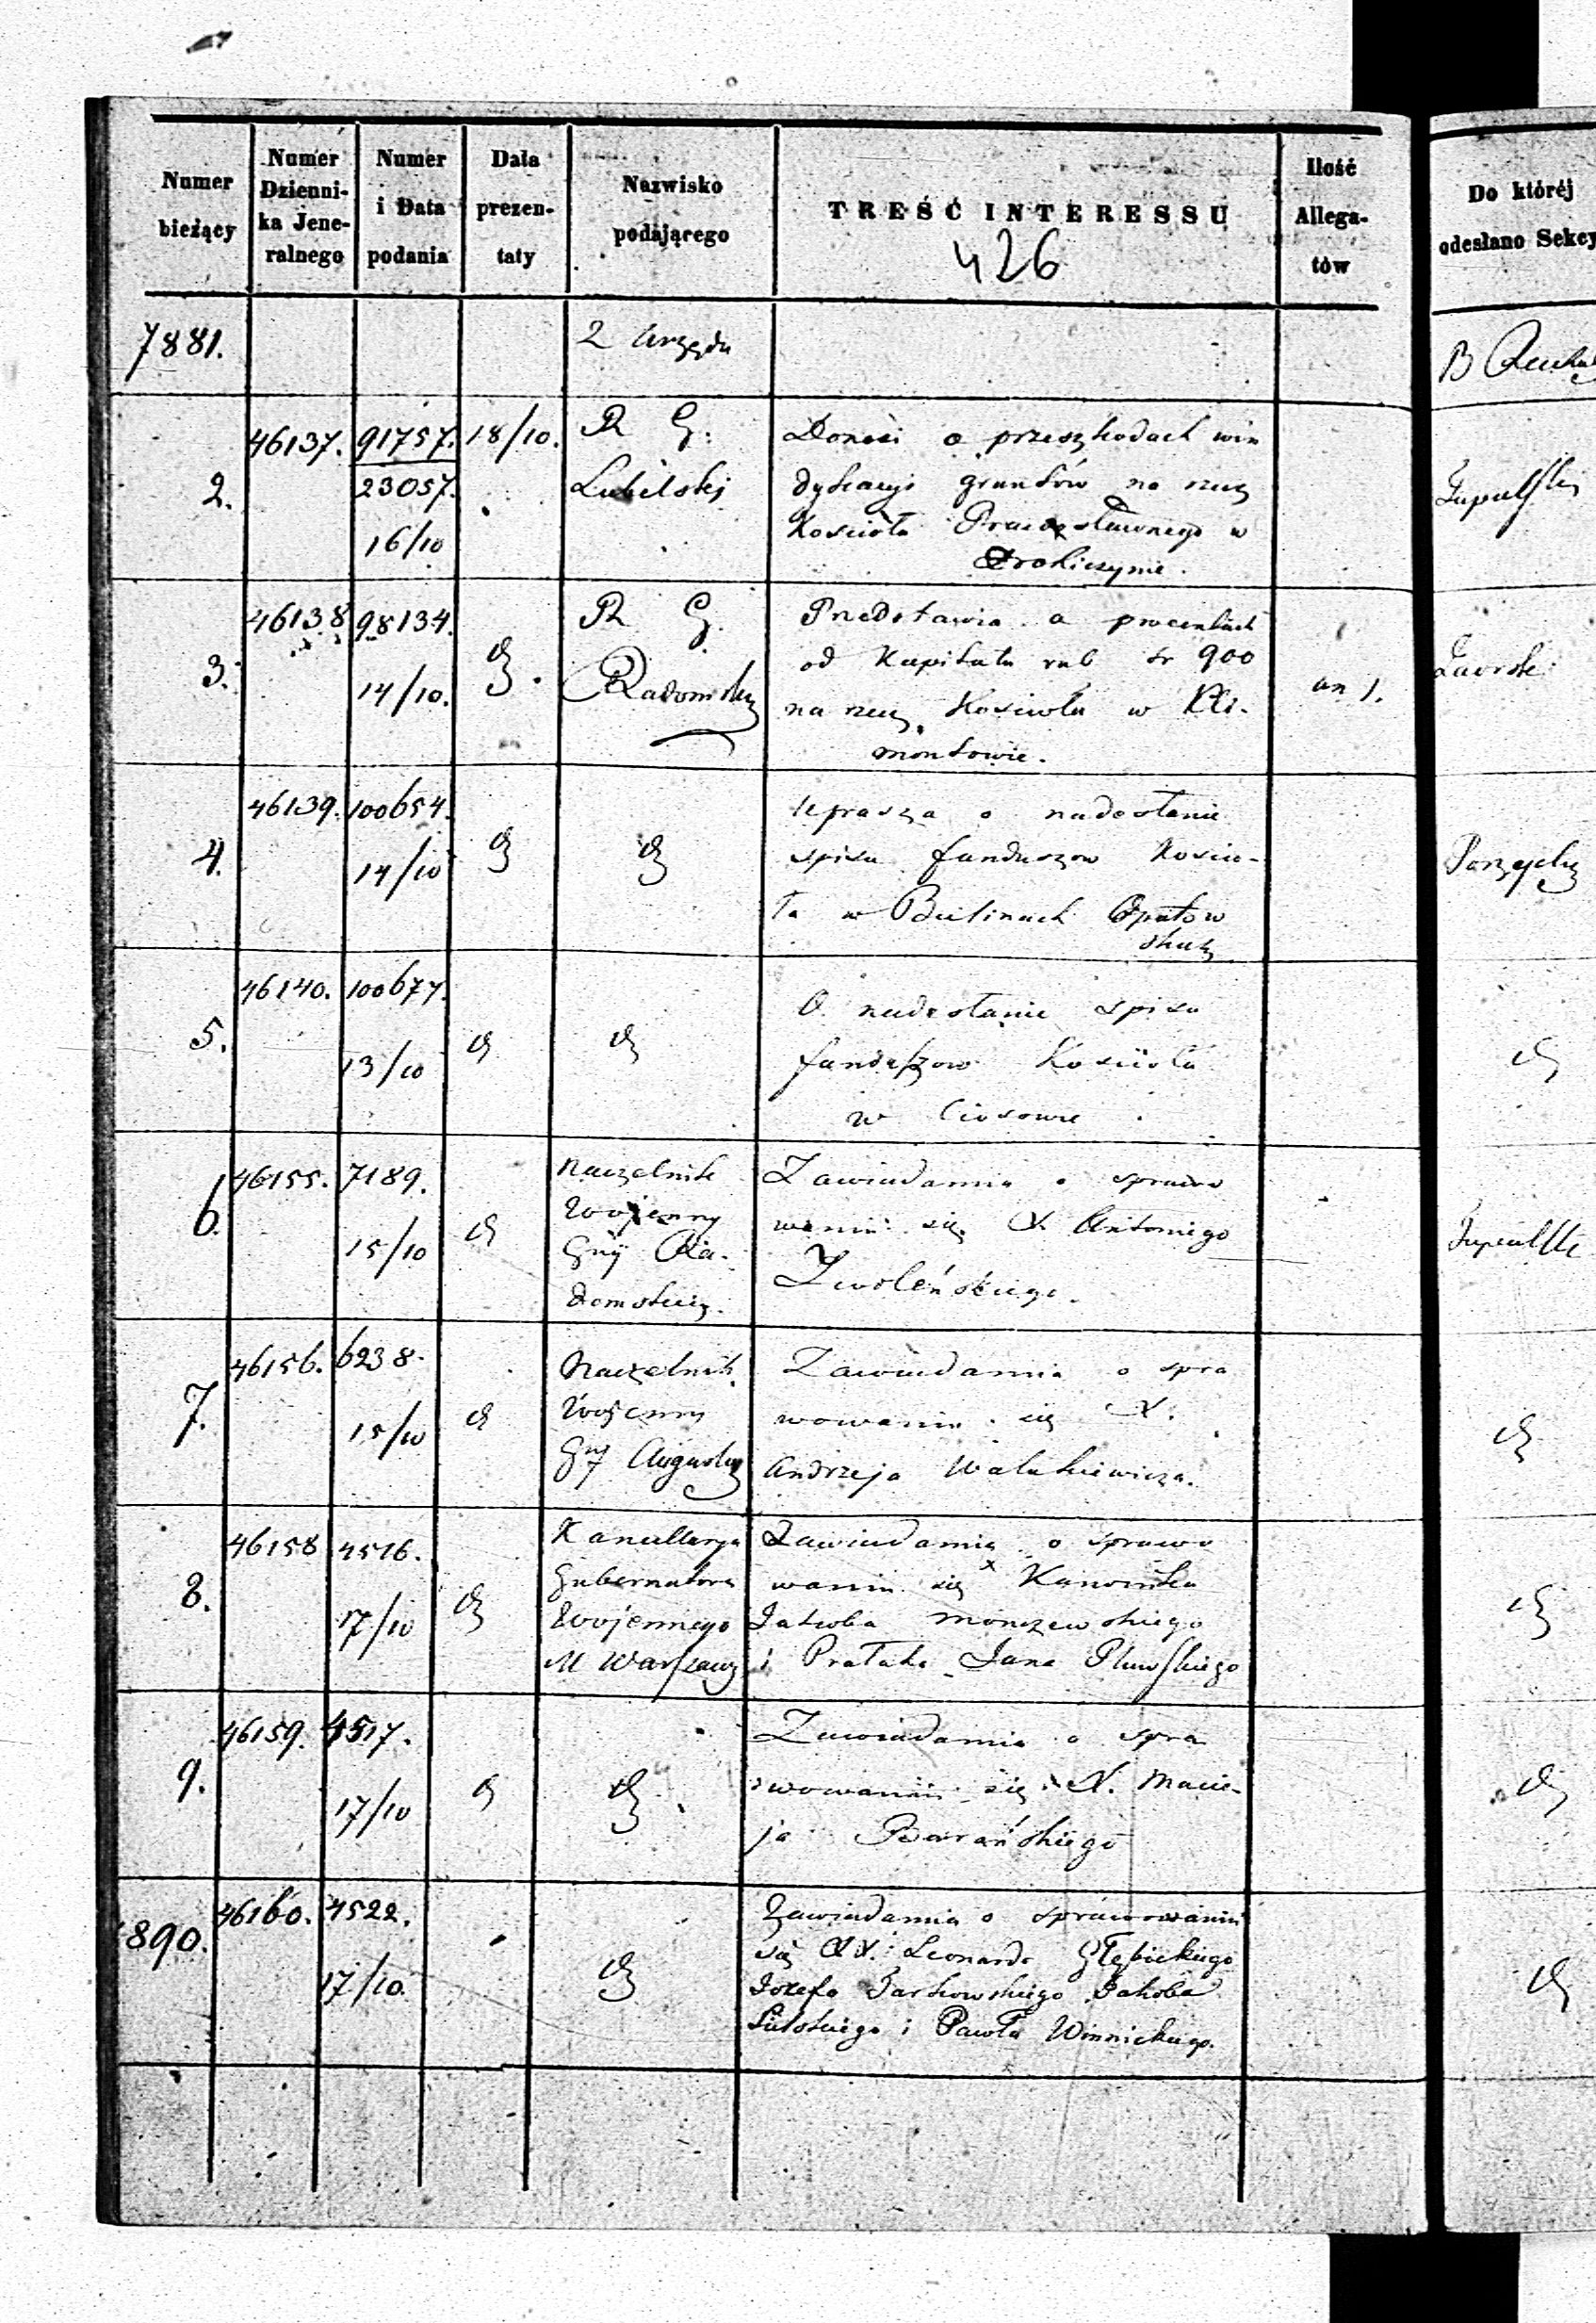 Numer bieżący
Numer Dzienni-ka Jene-ralnego
Numer i Data podania
Data prezen-taty
Nazwisko podającego
TREŚĆ INTERESSU
426
Ilość Allega-tów
Do któréj odesłano Sekcy
7881.
Z Urzędu
B
2.
46137.
91757.
23057.
16/10
18/10.
R G.
Lubelskj
Donosi o przeszkodach win
dykacyi gruntów na rzecz
Kościoła Prawosławnego w
Drohiczynie.
3.
46138
98134.
14/10.
R G.
Radomsky
Przedstawia o procentach
od Kapitału rub sr 900
na rzecz Kościoła w Kli-
montowie.
an 1.
4.
46139.
100654.
14/10
Uprasza o nadesłanie
spisu funduszow Koscio-
ła w Bielinach Opatow
skiey
5.
46140.
100677.
13/10
O nadesłanie spisu
funduszow Kościoła
w Ciosowie
6.
46155.
7189.
15/10
Naczelnik
Wojenny
Gnij Ra-
domskiej.
Zawiadamia o sprawo
waniu się X. Antoniego
Zwoleńskiego.
7.
46156.
6238.
15/10
Naczelnik
Wojenny
Zawiadamia o spra
wowaniu się X.
Andrzeja Walukiewicza.
8.
46158
4516.
17/10
Kancellarya
Gubernatora
Wojennego
M Warszawy
Zawiadamia o sprawo
waniu się Kanonika
Jakoba Monczewskiego
i Prałata Jana
9.
46159.
4517.
17/10
Zawiadamia o spra
wowaniu się X. Macie-
ja Barańskiego
890.
46160.
4522.
17/10.
Zawiadamia o sprawowaniu
się XX. Leonarda Głębickiego
Józefa Jakoba
i Pawła Winnickiego.